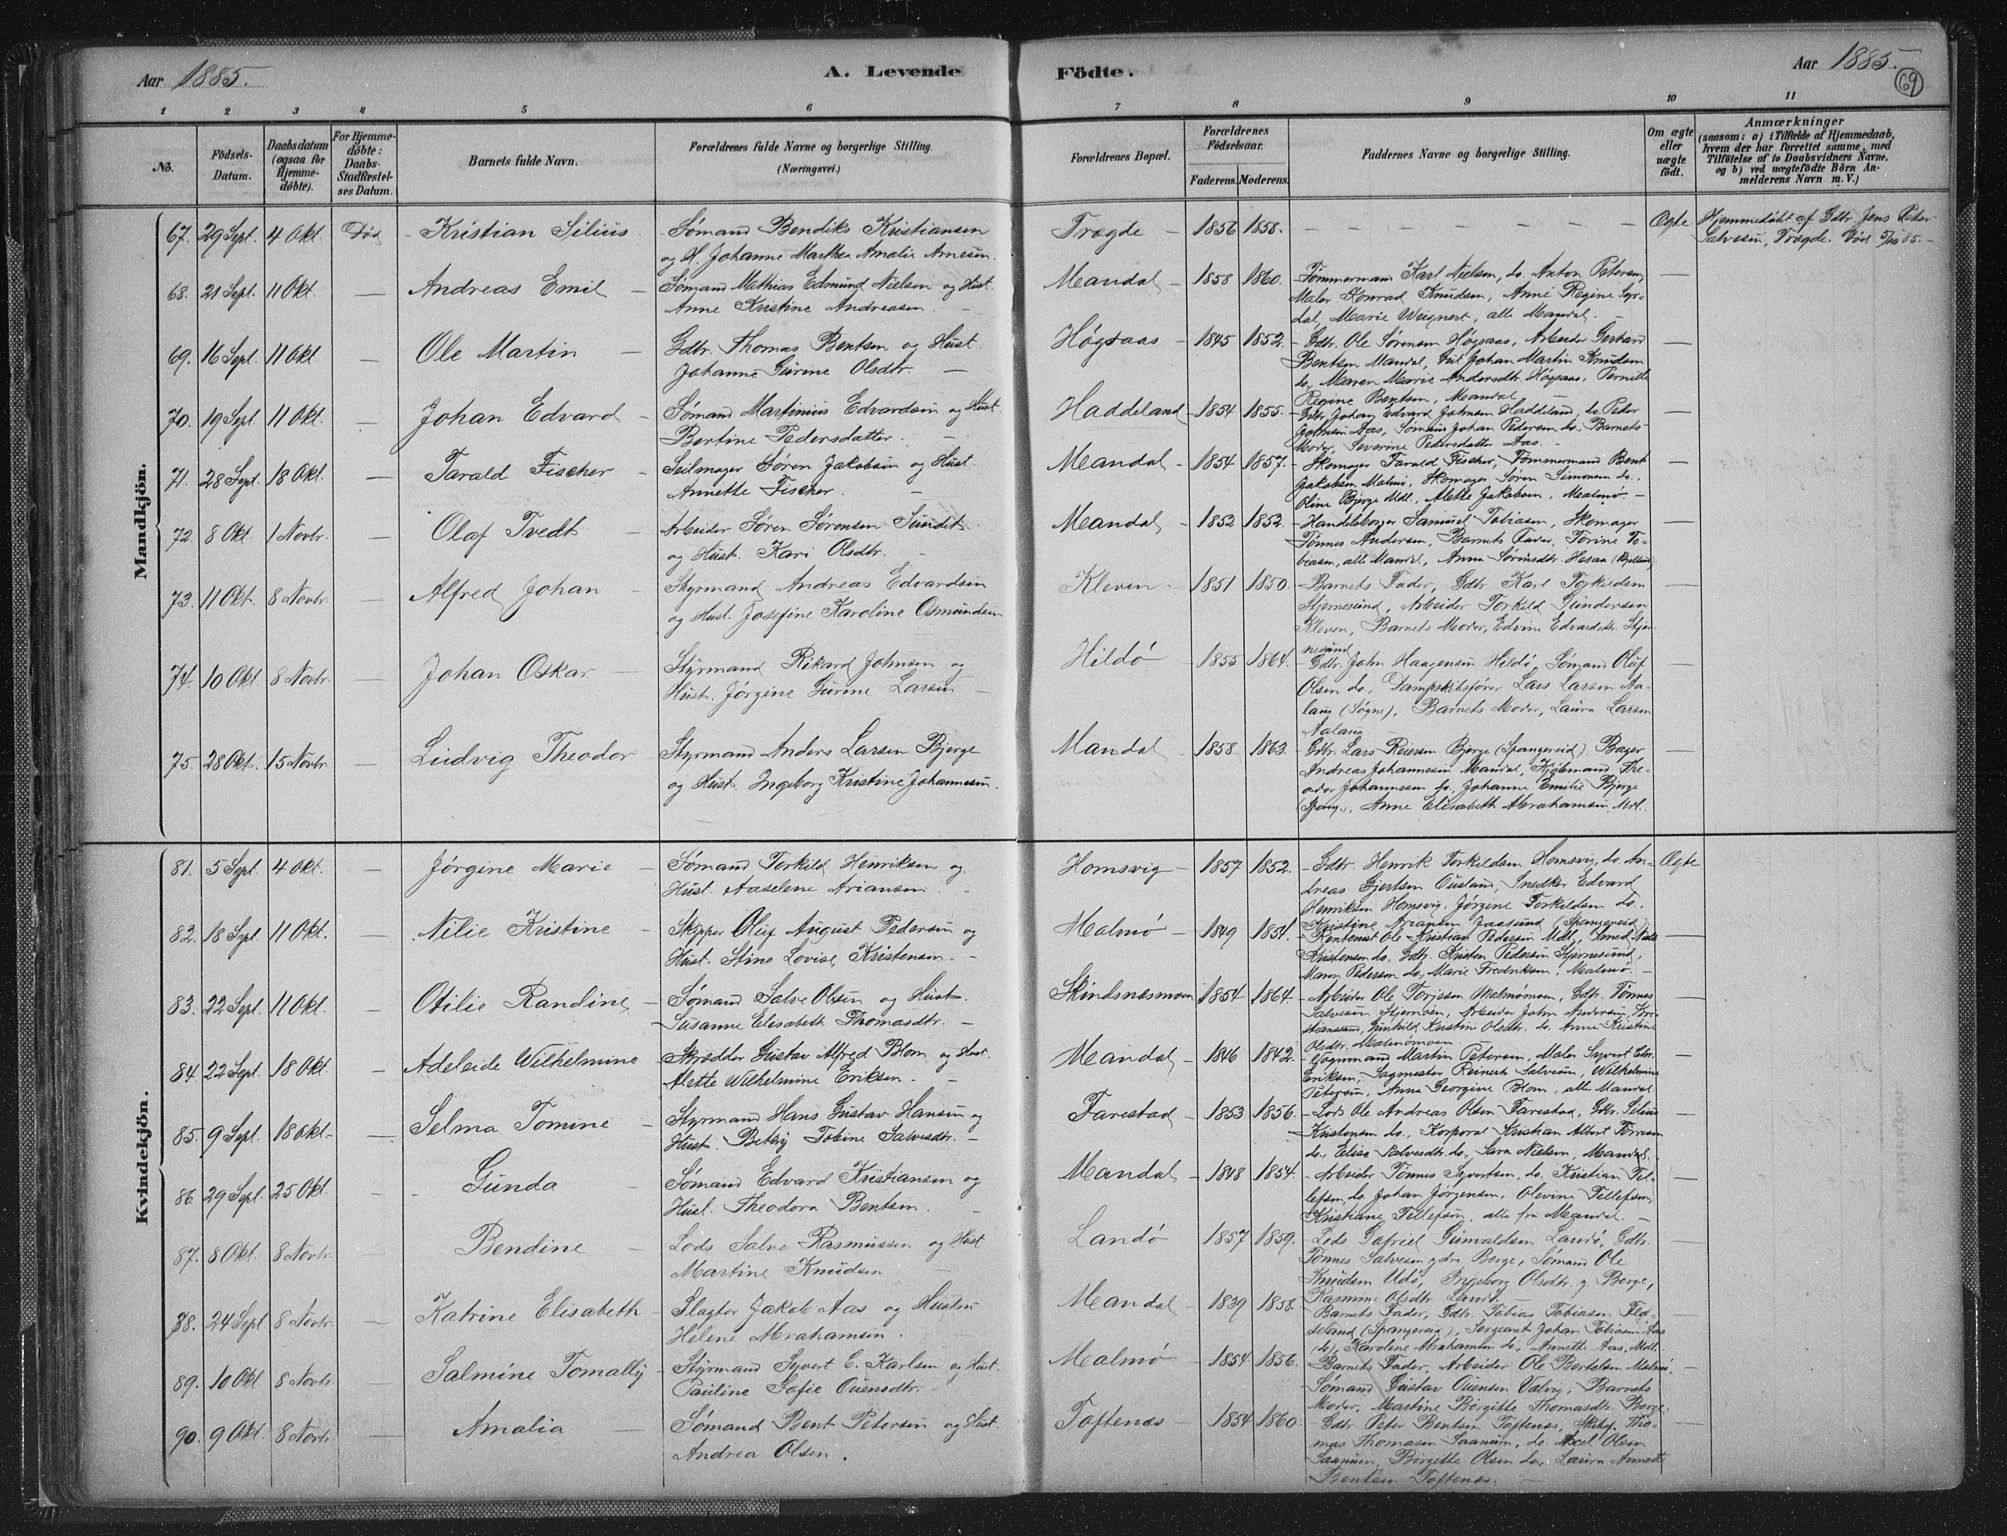 Aar 1885.
A. Levende Födte.
Aar 1885.
69
1 2 3 4 5 6 7 8 9 10 11
No.
Födsels-Datum.
Daabsdatum (ogsaa for Hjemmedöbte).
For Hjemmedöbte: Daabs-Stadfæstelses Datum.
Barnets fulde Navn.
Forældrenes fulde Navne og borgerlige Stilling. (Næringsvei.)
Forældrenes Bopæl.
Forældrenes Födselsaar.
Faderens. Moderens.
Faddernes Navne og borgerlige Stilling.
Om ægte eller uægte födt.
Anmærkninger
(saasom: a) i Tilfælde af Hjemmedaab, hvem der har forrettet samme, med Tilföielse af to Daabsvidners Navne, og b) ved uægtefödte Börn Anmelderens Navn m. V.)
Mandkjön.
67. 29 Sept. 4 Okt. Død Kristian Silius. Sømand Bendiks Kristiansen
og H. Johanne Marthea Amalie Arnesen.
Trægde 1856 1858. Ægte Hjemmedøbt af Gdbr. Jens Peter
Salvesen, Trægde. Død 5/10 85.
68. 21 Sept. 11 Okt. Andreas Emil Sømand Mathias Edmund Nielsen og Hust.
Anne Kristine Andreasen.
Mandal 1858 1860. Tømmermand Karl Nielsen, do. Anton Petersen,
Maler Konrad Knudsen, Anne Regine Syr-
dal, Marie Weignert, alle Mandal.
69. 16 Sept. 11 Okt. Ole Martin Gdbr. Thomas Bentsen og Hust.
Johanne Gurine Olsdtr.
Høgsaas 1845 1852. Gdbr. Ole Sørensen Høgsaas, Arbeider Gerhard
Bentsen Mandal, Johan Martin Knudsen
do, Maren Marie Andersdtr. Høgsaas, Pernille
Regine Bentsen, Mandal
70. 19 Sept. 11 Okt. Johan Edvard Sømand Martinius Edvardsen og Hust.
Bertine Pedersdatter.
Haddeland 1854 1855. Gdbr. Johan Edvard Johnsen Haddeland, do. Peter
Johnsen Aas, Sømand Johan Pedersen do. Barnets
Moder, Severine Pedersdatter Aas.
71. 28 Sept. 18 Okt. Tarald Fischer Seilmager Søren Jakobsen og Hust.
Annette Fischer.
Mandal 1854 1857. Skomager Tarald Fischer, Tømmermand Bent
Jakobsen Malmø, Skomager Søren Simonsen do.,
Oline Bjerge Mdl., Alette Jakobsen, Malmø.
72. 8 Okt. 1 Novbr. Olaf Tvedt Arbeider Søren Sørensen Sundet
og Hust. Kari Olsdtr.
Mandal 1852 1852. Handelsborger Samuel Tobiasen, Skomager
Tønnes Andersen, Barnets Fader, Torine To-
biasen, alle Mandal, Anna Sørensdtr. Hesaa
73. 11 Okt. 8 Novbr. Alfred Johan Styrmand Andreas Edvardsen
og Hust. Josefine Karoline Osmundsen
Kleven 1851 1850. Barnets Fader, Gdbr. Karl Torkildsen
Stjernesund, Arbeider Torkild Gundersen
Kleven, Barnets Moder, Edvine Edvardsdtr. Stjer-
nesund
74. 10 Okt. 8 Novbr. Johan Oskar Styrmand Rikard Johnsen og
Hust. Jørgine Gurine Larsen
Hildø 1855 1864. Gdbr. John Haagensen Hildø, Sømand Oluf
Olsen do, Dampskibsfører Lars Larsen Aa-
lang (Søgne), Barnets Moder, Laura Larsen
Aalang
75. 28 Okt. 15 Novbr. Ludvig Theodor Styrmand Anders Larsen Bjerge
og Hust. Ingeborg Kristine Johannesen.
Mandal 1858 1863. Gdbr. Lars Reiersen Bjerge (Spangereid) Bager
Andreas Johannessen Mandal, Kjøbmand The-
odor Johannessen do, Johanne Emilie Bjerge
Spang., Anne Elisabeth Abrahamsen Mdl.
Kvindekjön.
81. 5 Sept. 4 Okt. Jørgine Marie Sømand Torkild Henriksen og
Hust. Aaselene Ariansen.
Homsvig 1857 1852. Gdbr. Henrik Torkildsen Homsvig, do. An- Ægte
dreas Gjertsen Ousland, Snedker Edvard
Henriksen Homsvig, Jørgine Torkildsen do.
Kristine Ariansen Jaasund (Spangereid).
82. 18 Sept. 11 Okt. Nilie Kristine Skipper Oluf August Pedersen og
Hust. Stine Lovise Kristensen.
Malmø 1849 1854. Rentenist Ole Kristian Pedersen Mdl., Smed Niels
Kristensen do, Gdbr. Kristen Pedersen Stjernesund,
Maren Pedersen do, Marie Fredriksen, Malmø.
83. 22 Sept. 11 Okt. Otilie Randine Sømand Salve Olsen og Hust.
Susanne Elisabeth Thomasdtr.
Skindsnæsmoen 1854 1864. Arbeider Ole Torjesen Malmømoen, Gdbr. Tønnes
Salvesen Stjernøen, Arbeider John Andersen, Kri-
stiansand, Gunhild Kristin Olsdtr. do. Anne Kristine
Olsdtr. Malmømoen
84. 22 Sept. 18 Okt. Adeleide Wilhelmine Skrædder Gustav Alfred Blom og Hust.
Alette Wilhelmine Eriksen.
Mandal 1846 1842. Vognmand Martin Petersen, Maler Syvert Edv.
Eriksen, Sagmester Reinert Salvesen, Wilhelmine
Petersen, Anna Georgine Blom, alle Mandal.
85. 9 Sept. 18 Okt. Selma Tomine Styrmand Hans Gustav Hansen og
Hust. Betsy Tobine Salvesdtr.
Farestad 1853 1856. Lods Ole Andreas Olsen Farestad, Gdbr. Silius
Kristensen do., Korporal Kristian Albert Torresen
do., Elisa Salvesdtr. do, Sara Nielsen, Mandal.
86. 29 Sept. 25 Okt. Gunda Sømand Edvard Kristiansen og
Hust. Theodora Bentsen.
Mandal 1848 1854. Arbeider Tønnes Syvertsen, do. Kristian Til-
lefsen, do. Johan Jørgensen, Olevine Tillefsen,
Kristiane Tillefsen, alle fra Mandal.
87. 8 Okt. 8 Novbr. Bendine Lods Salve Rasmussen og Hust.
Martine Knudsen
Landø 1857 1859. Lods Gabriel Gunvaldsen Landø, Gdbr.
Tønnes Salvesen ydre Berge, Sømand Ole
Knudsen Udø, Ingeborg Olsdtr. y. Berge,
Rasmine Olsdtr. Landø
88. 24 Sept. 8 Novbr. Katrine Elisabeth Slagter Jakob Aas og Hustru
Helene Abrahamsen.
Mandal 1839 1858. Barnets Fader, Gdbr. Tobias Tobiasen Fid-
seland (Spangereid), Sergeant Johan Tobiasen Aas
do), Karoline Abrahamsen do, Annette Aas, Mdl.
89. 10 Okt. 8 Novbr. Salmine Tomally Styrmand Syvert E. Karlsen og Hust.
Pauline Sofie Ouensdtr.
Malmø 1854 1856. Barnets Fader, Arbeider Ole Bertelsen Malmø,
Sømand Gustav Ouensen Valvig, Barnets
Moder, Martine Birgitte Thomasdtr. Berge.
90. 9 Okt. 8 Novbr. Amalia Sømand Bent Petersen og Hust.
Andrea Olsen.
Toftenes 1854 1860 Gdbr. Peter Bentsen Toftenes, Skibsf. Tho-
mas Thomasen Saanum, do. Axel Olsen
Saanum, Birgitte Olsen do, Laura Annette
Bentsen Toftenes.